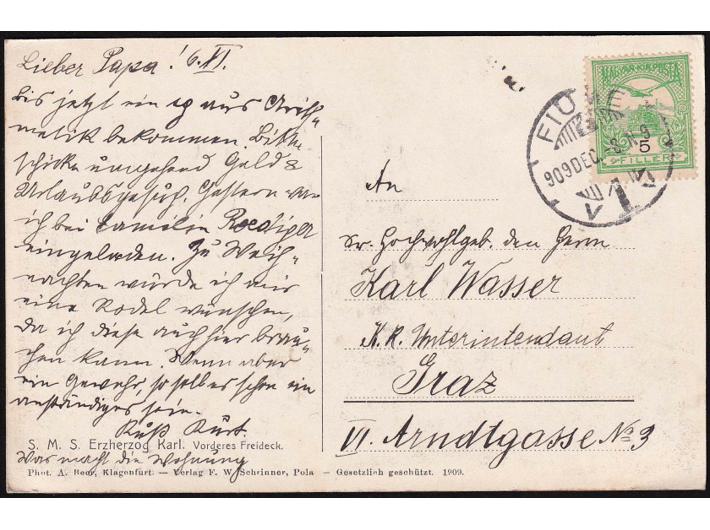 Lieber Papa! 6. XI.
Bis jetzt ein sg aus Arith-
metik bekommen. Bitte
schicke umgehend Geld &
Urlaubsgesuch. Gestern war
ich bei Familie
eingeladen. Zu Weih-
nachten würde ich mir
eine Rodel wünschen,
da ich diese auch hier brau-
chen kann. Wenn aber
ein Gewehr, so soll es schon ein
anständiges sein.
Kuß Kurt.
S. M. S. Erzherzog Karl. Vorderes Freideck.
Was macht die Wohnung
Phot. A. Beer, Klagenfurt. — Verlag F. W. Schrinner, Pola — Gesetzlich geschützt. 1909.
MAGYAR KIR. POSTA
5
FILLÉR
FIUME
909 DEC. -8
An
Sr. Hochwohlgeb. den Herrn
Karl Wasser
K. K. Unterintendant
Graz
VI. Arndtgasse No 3